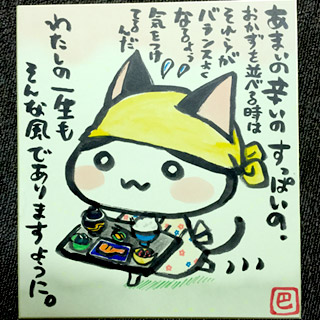 あまいの 辛いの すっぱいの、
おかずを並べる時は
それらが
バランスよく
なるよう
気をつけ
てるんだ
わたしの一生も
そんな風でありますように。
巴